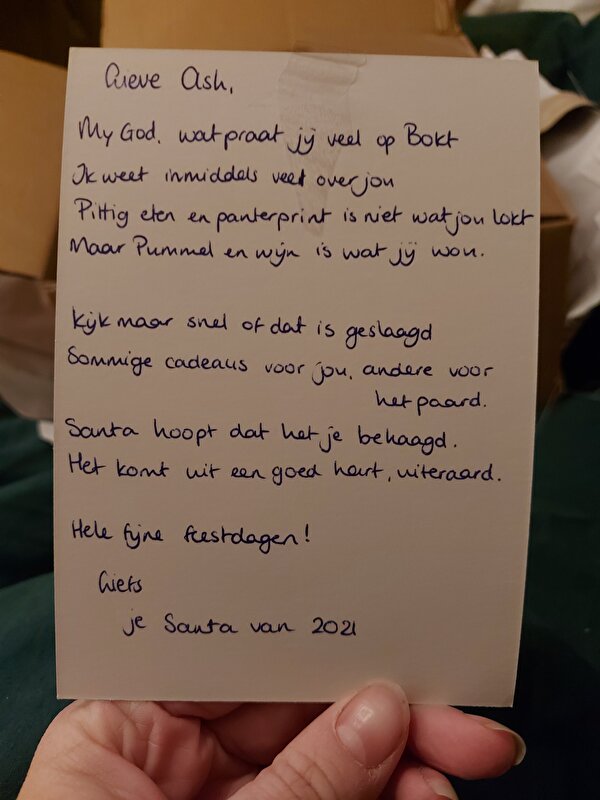 Lieve Ash,
My God, wat praat jij veel op Bokt
Ik weet inmiddels veel over jou
Pittig eten en panterprint is niet wat jou lokt
Maar Pummel en wijn is wat jij wou.
Kijk maar snel of dat is geslaagd
Sommige cadeaus voor jou, andere voor
het paard.
Santa hoopt dat het je behaagd.
Het komt uit een goed hart, uiteraard.
Hele fijne feestdagen!
Liefs
je Santa van 2021